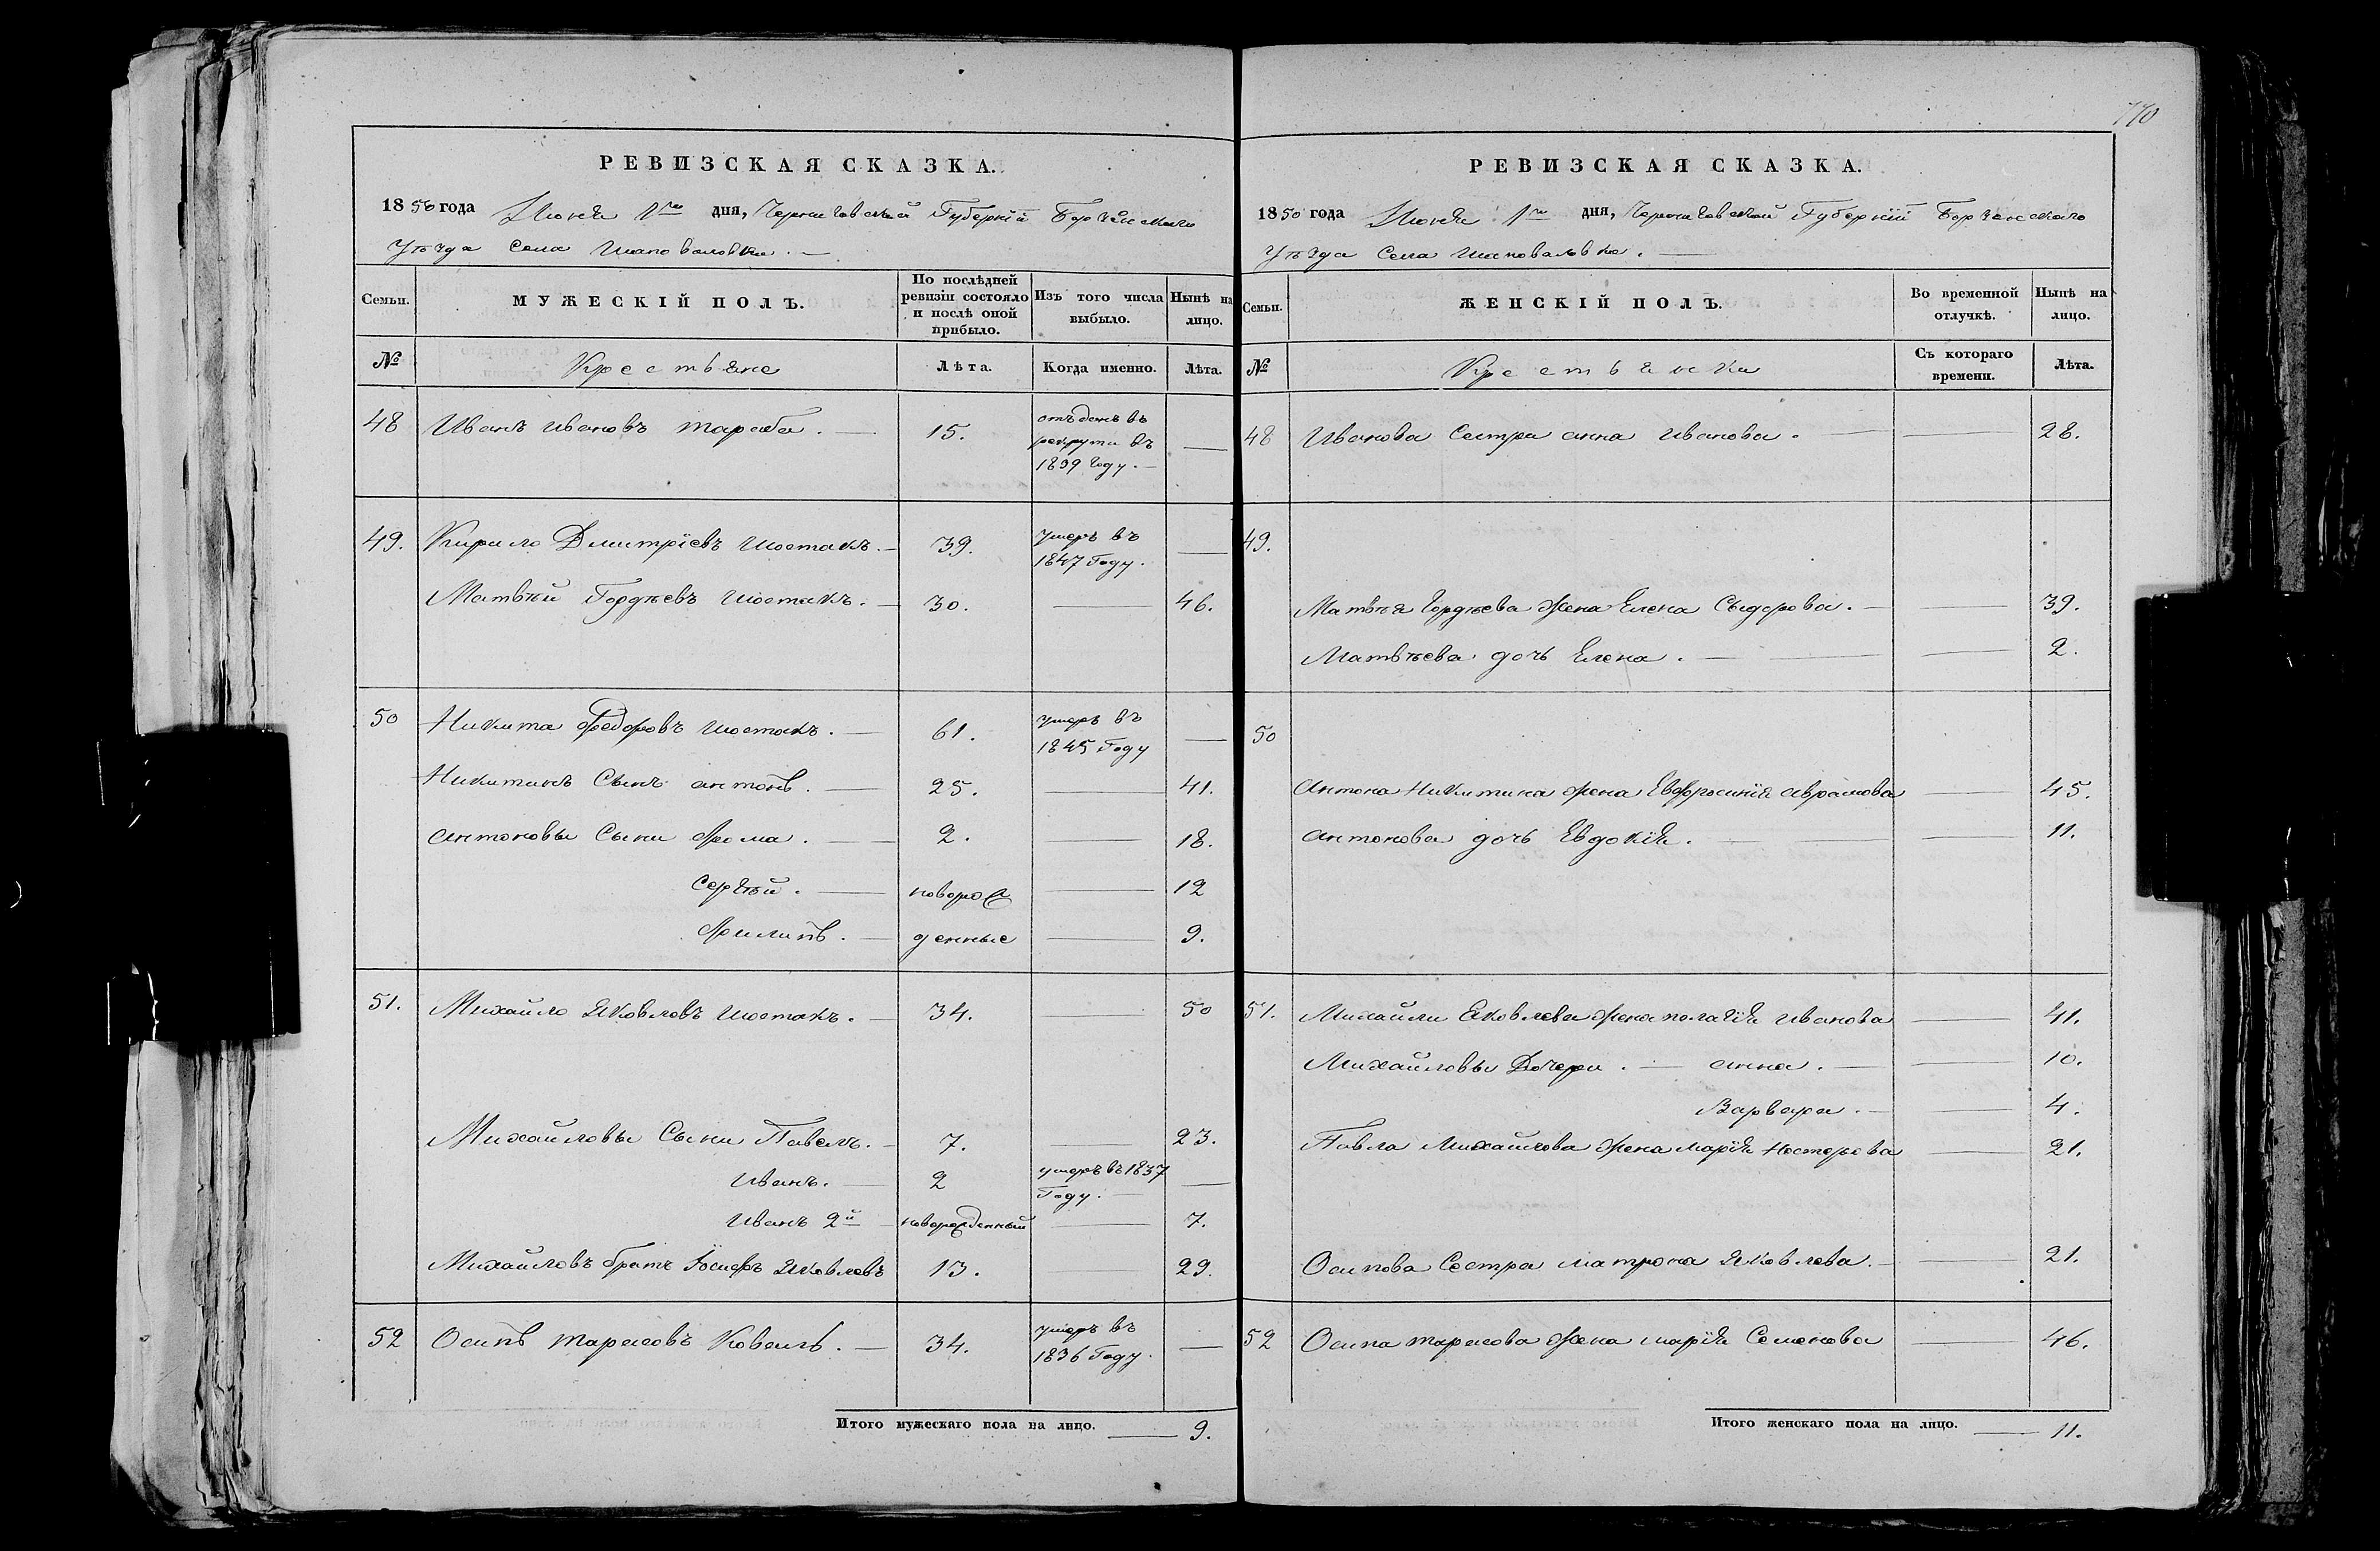 770
РЕВИЗСКАЯ СКАЗКА.
1850 года Июня 1го дня, Черниговской Губерніи Борзенскаго
Уѣзда Села Шаповаловки. —
Семьи.
МУЖЕСКІЙ ПОЛЪ.
По послѣдней ревизіи состояло и послѣ оной прибыло.
Изъ того числа выбыло.
Нынѣ на лицо.
№
Крестьяне
Лѣта.
Когда именно.
Лѣта.
48 Иванъ Ивановъ Тараба. — 15. отъданъ въ рекруты въ 1839 Году. — —
49. Кирило Дмитріевъ Шостакъ. — 39. умеръ въ 1847 Году. —
Матвѣй Гордѣевъ Шостакъ. — 30. — 46.
50 Никита Федоровъ Шостакъ. — 61. умеръ въ 1845 Году —
Никитинъ Сынъ Антонъ. — 25. — 41.
Антоновы Сыни Фома. — 2. — 18.
Сергѣй. — новорож — 12
Филипъ. — денные — 9.
51. Михайло Яковловъ Шостакъ. — 34. — 50
Михайловы Сыни Павелъ. — 7. — 23.
Иванъ. — 2 умеръ въ 1837 Году. — —
Иванъ 2й — новорожденный — 7.
Михайловъ братъ Іосифъ Яковловъ 13. 29.
52 Осипъ Тарасовъ Коваль. — 34. умеръ въ 1836 Году. —
Итого мужескаго пола на лицо. — 9.
РЕВИЗСКАЯ СКАЗКА.
1850 года Июня 1го дня, Черниговской Губерніи Борзенскаго
Уѣзда Села Шаповаловки. —
Семьи.
ЖЕНСКІЙ ПОЛЪ.
Во временной отлучкѣ.
Нынѣ на лицо.
№
Крестьянки
Съ котораго времени.
Лѣта.
48 Иванова Сестра Анна Иванова. — — 28.
49.
Матвѣя Гордѣева Жена Елена Сыдорова. — — 39.
Матвѣева дочь Елена. — — 2.
50
Антона Никитина жена Евфросинія Аврамова — 45.
Антонова дочь Евдокія. — — 11.
51. Михайли Яковлева Жена Пелагія Иванова — 41.
Михайловы Дочери. — Анна. — — 10.
Варвара. — — 4.
Павла Михайлова Жена Марія Нестерова — 21.
Осипова Сестра Матрона Яковлева. — — 21.
52 Осипа Тарасова Жена Марія Семенова — 46.
Итого женскаго пола на лицо. — 11.